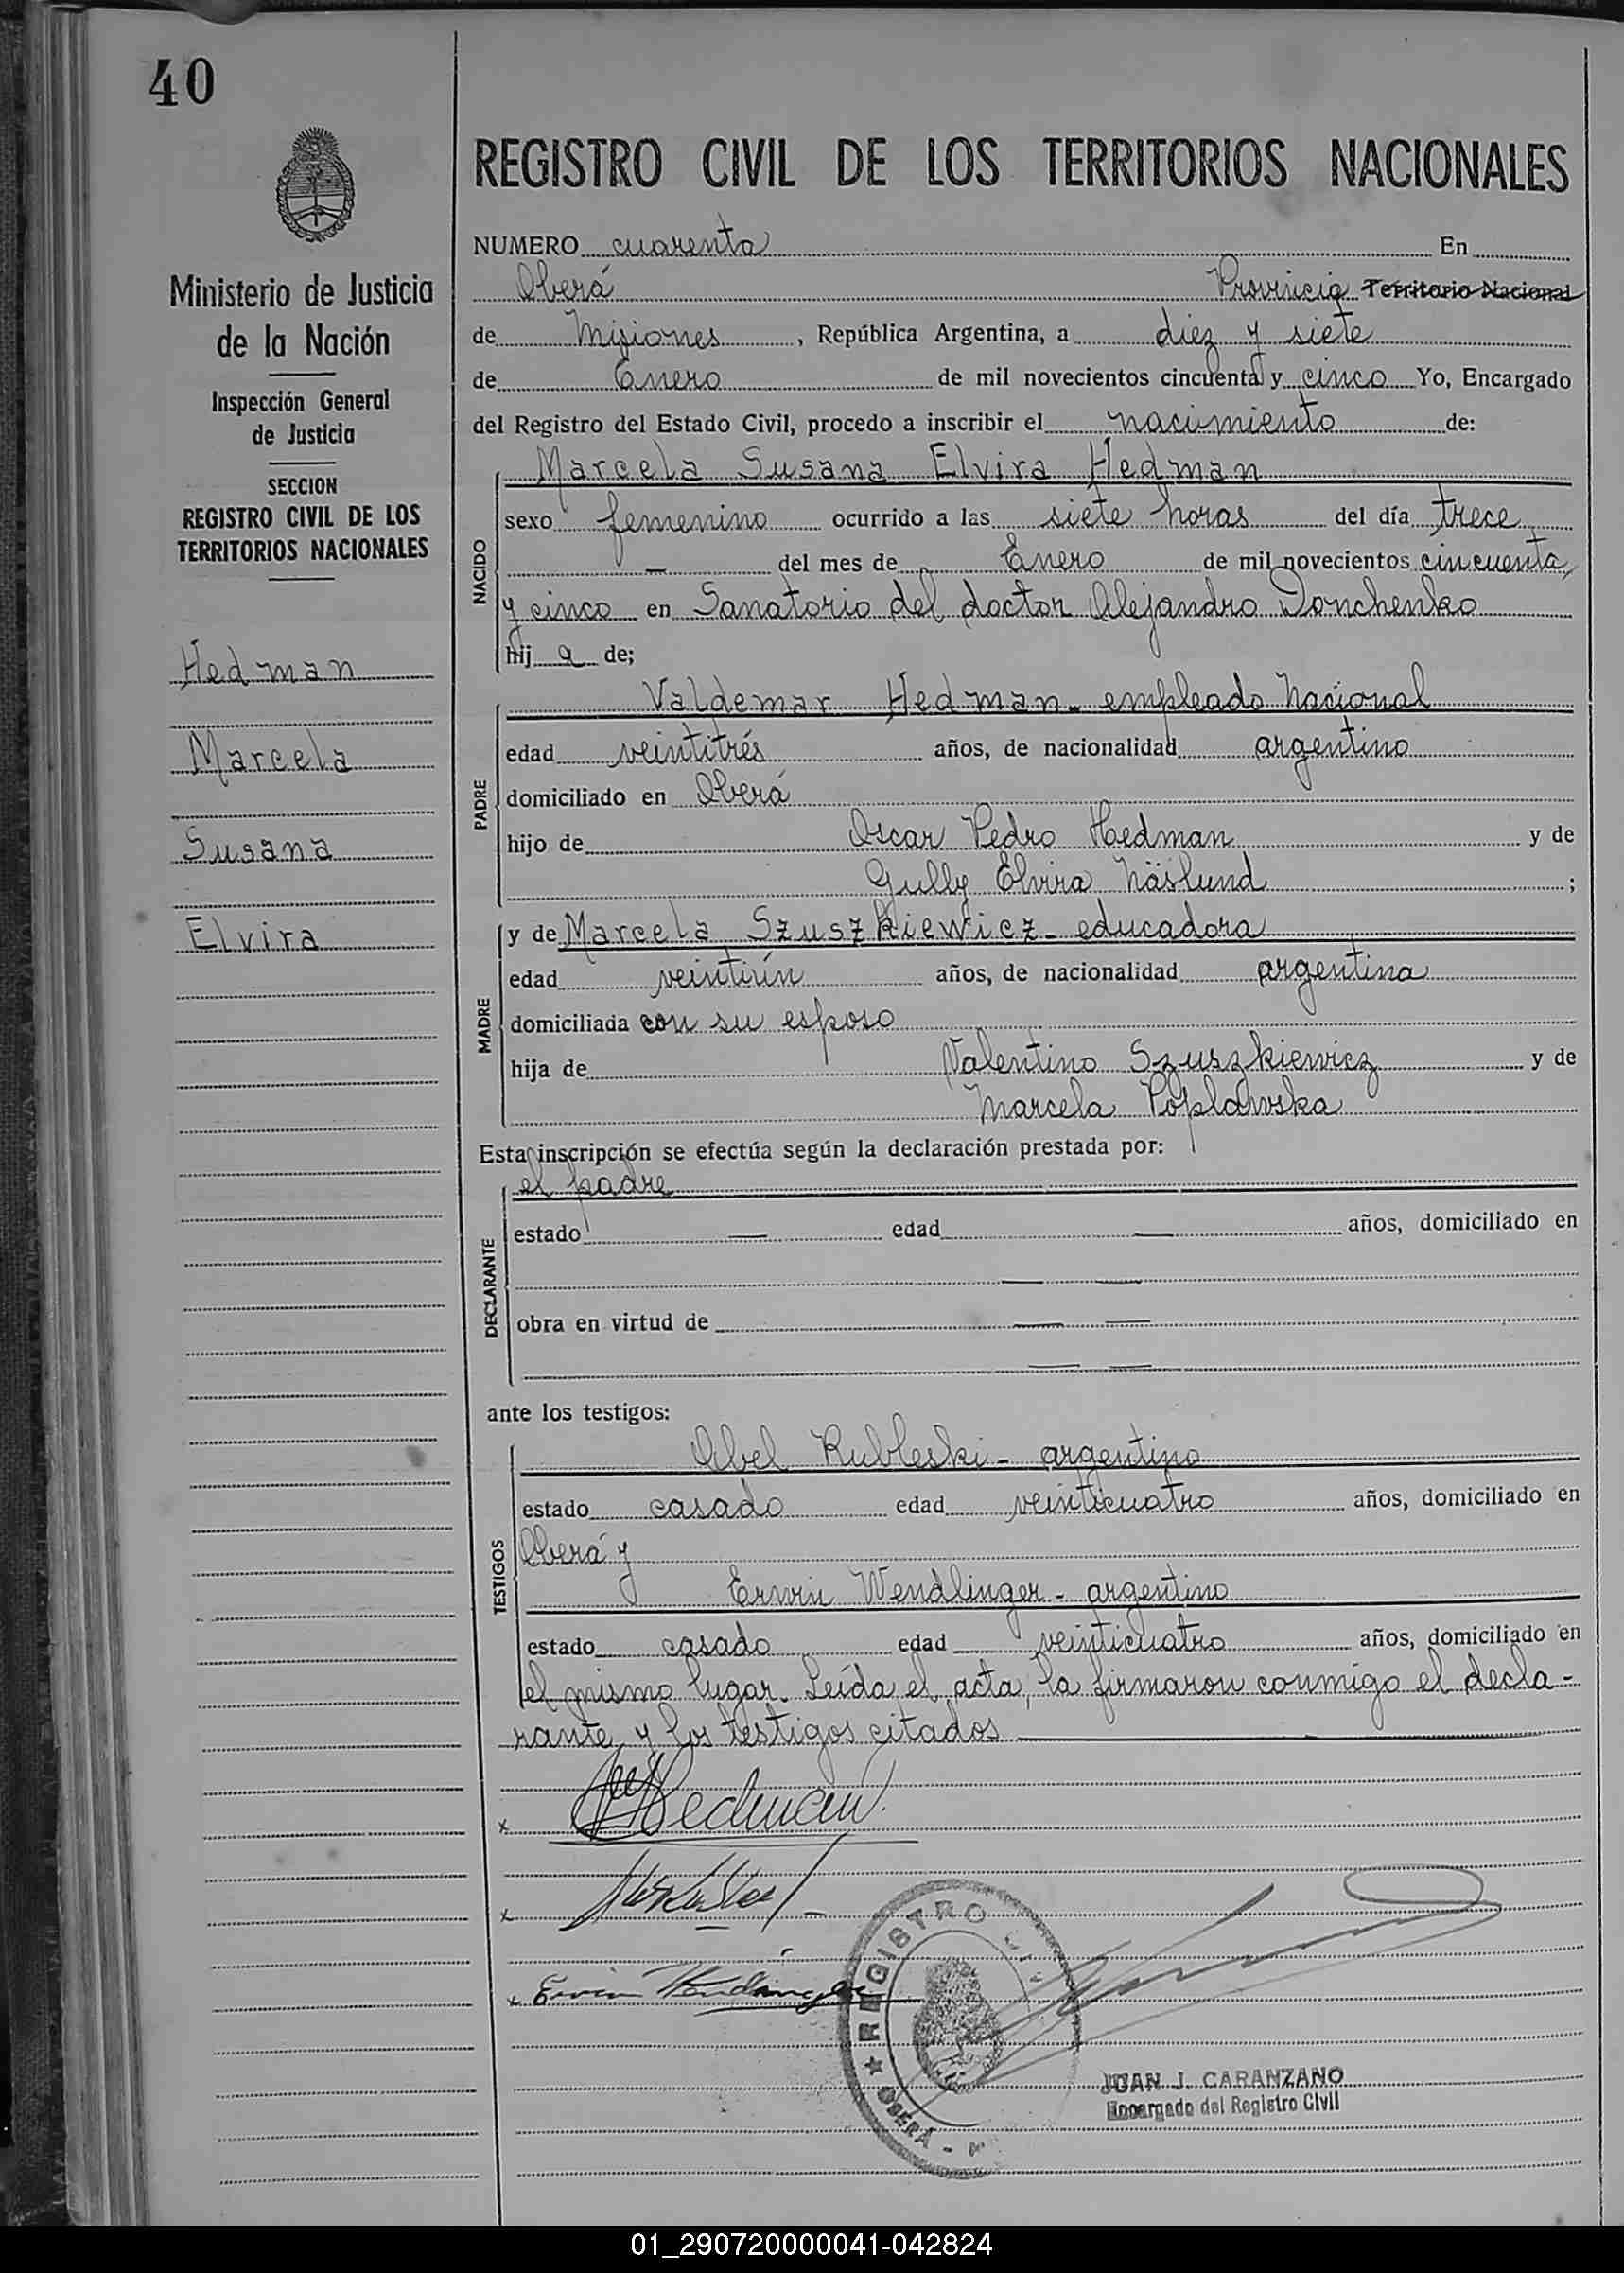 40
REGISTRO CIVIL DE LOS TERRITORIOS NACIONALES
Ministerio de Justicia
de la Nación
Inspección General
de Justicia
SECCION
REGISTRO CIVIL DE LOS
TERRITORIOS NACIONALES
Hedman
Marcela
Susana
Elvira
NUMERO cuarenta En
Oberá Provincia Territorio Nacional
de Misiones, República Argentina, a diez y siete
de Enero de mil novecientos cincuenta y cinco Yo, Encargado
del Registro del Estado Civil, procedo a inscribir el nacimiento de:
NACIDO
Marcela Susana Elvira Hedman
sexo femenino ocurrido a las siete horas del día trece
— del mes de Enero de mil novecientos cincuenta
y cinco en Sanatorio del doctor Alejandro Donchenko
hij a de;
PADRE
Valdemar Hedman - empleado Nacional
edad veintitrés años, de nacionalidad argentino
domiciliado en Oberá
hijo de Oscar Pedro Hedman y de
Gully Elvira Näslund ;
MADRE
y de Marcela Szuszkiewicz - educadora
edad veintiún años, de nacionalidad argentina
domiciliada con su esposo
hija de Valentino Szuszkiewicz y de
Marcela Poplawska
Esta inscripción se efectúa según la declaración prestada por:
DECLARANTE
el padre
estado — edad — años, domiciliado en
— —
obra en virtud de — —
— —
ante los testigos:
TESTIGOS
Abel Rubleski - argentino
estado casado edad veinticuatro años, domiciliado en
Oberá y
Erwin Wendlinger - argentino
estado casado edad veinticuatro años, domiciliado en
el mismo lugar. Leída el acta, la firmaron conmigo el decla-
rante y los testigos citados
x Hedman
x
x Erwin Wendlinger
REGISTRO
OBERÁ - M
JUAN J. CARANZANO
Encargado del Registro Civil
01_290720000041-042824